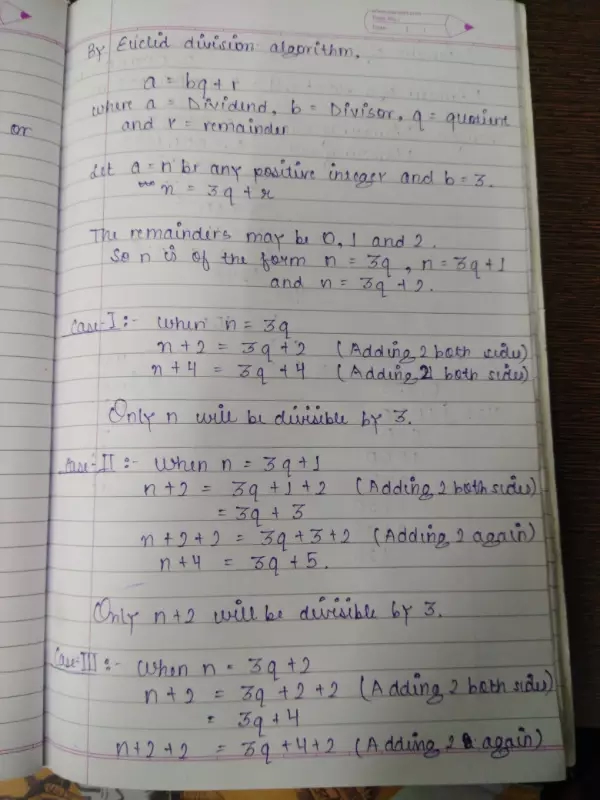 or
By Euclid division algorithm.
a = bq + r
where a = Dividend, b = Divisor, q = quotient
and r = remainder
Let a = n be any positive integer and b = 3.
n = 3q + r
The remainders may be 0, 1 and 2.
So n is of the form n = 3q, n = 3q + 1
and n = 3q + 2.
Case-I :- When n = 3q
n + 2 = 3q + 2 (Adding 2 both sides)
n + 4 = 3q + 4 (Adding 2 both sides)
Only n will be divisible by 3.
Case-II :- When n = 3q + 1
n + 2 = 3q + 1 + 2 (Adding 2 both sides)
= 3q + 3
n + 2 + 2 = 3q + 3 + 2 (Adding 2 again)
n + 4 = 3q + 5.
Only n + 2 will be divisible by 3.
Case-III :- When n = 3q + 2
n + 2 = 3q + 2 + 2 (Adding 2 both sides)
= 3q + 4
n + 2 + 2 = 3q + 4 + 2 (Adding 2 again)